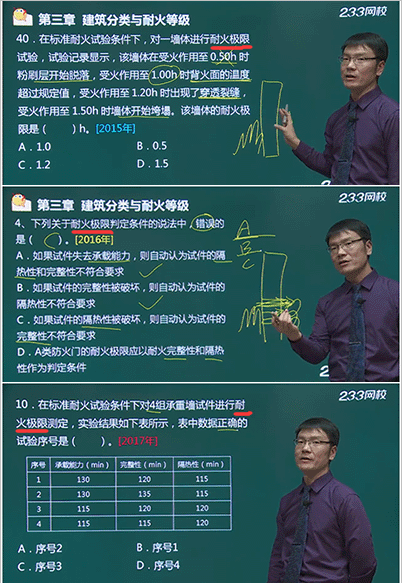 第三章 建筑分类与耐火等级
233网校
40．在标准耐火试验条件下，对一墙体进行耐火极限
试验，试验记录显示，该墙体在受火作用至 0.50h 时
粉刷层开始脱落，受火作用至 1.00h 时背火面的温度
超过规定值，受火作用至 1.20h 时出现了穿透裂缝，
受火作用至 1.50h 时墙体开始垮塌。该墙体的耐火极
限是（ ）h。[2015年]
A．1.0 B．0.5
C．1.2 D．1.5
第三章 建筑分类与耐火等级
233网校
4、下列关于耐火极限判定条件的说法中，错误的
是（ ）。[2016年]
A．如果试件失去承载能力，则自动认为试件的隔
热性和完整性不符合要求
B．如果试件的完整性被破坏，则自动认为试件的
隔热性不符合要求
C．如果试件的隔热性被破坏，则自动认为试件的
完整性不符合要求
D．A类防火门的耐火极限应以耐火完整性和隔热
性作为判定条件
A
B
C
233网校
10．在标准耐火试验条件下对4组承重墙试件进行耐
火极限测定，实验结果如下表所示，表中数据正确的
试验序号是（ ）。[2017年]
序号 承载能力（min） 完整性（min） 隔热性（min）
1 130 120 115
2 130 135 115
3 115 120 120
4 115 115 120
A．序号2 B．序号1
C．序号3 D．序号4